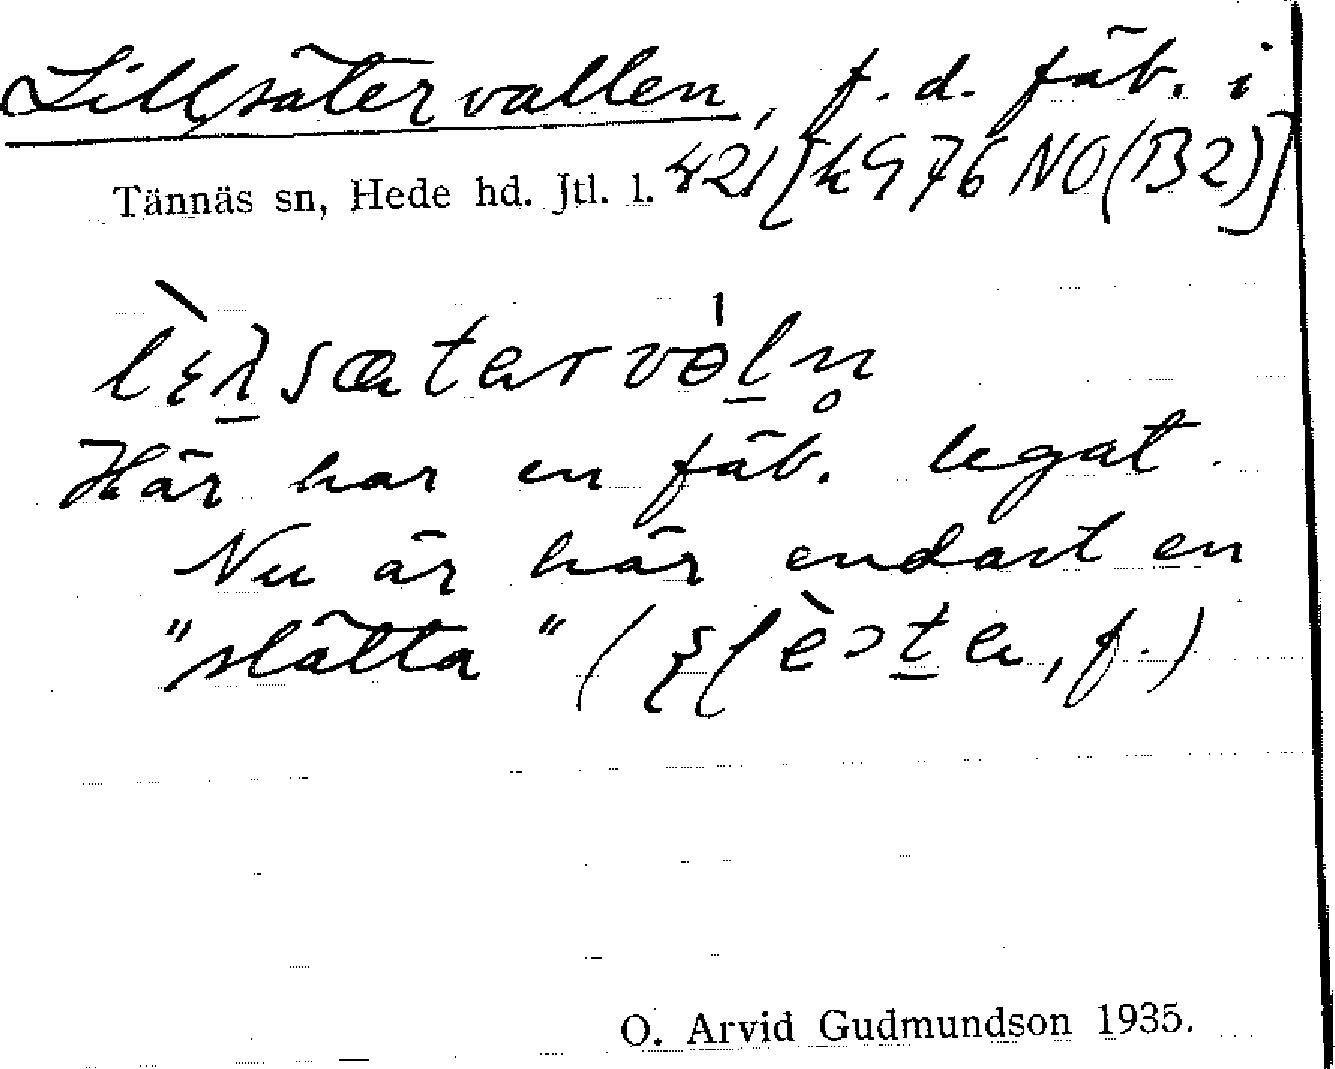 Lillsätervallen, f.d. fäb. i
Tännäs sn, Hede hd. Jtl. l. 421 [k976NO(B2)]
Här har en fäb. legat.
Nu är här endast en
"slätta" (
, f.)
O. Arvid Gudmundson 1935.